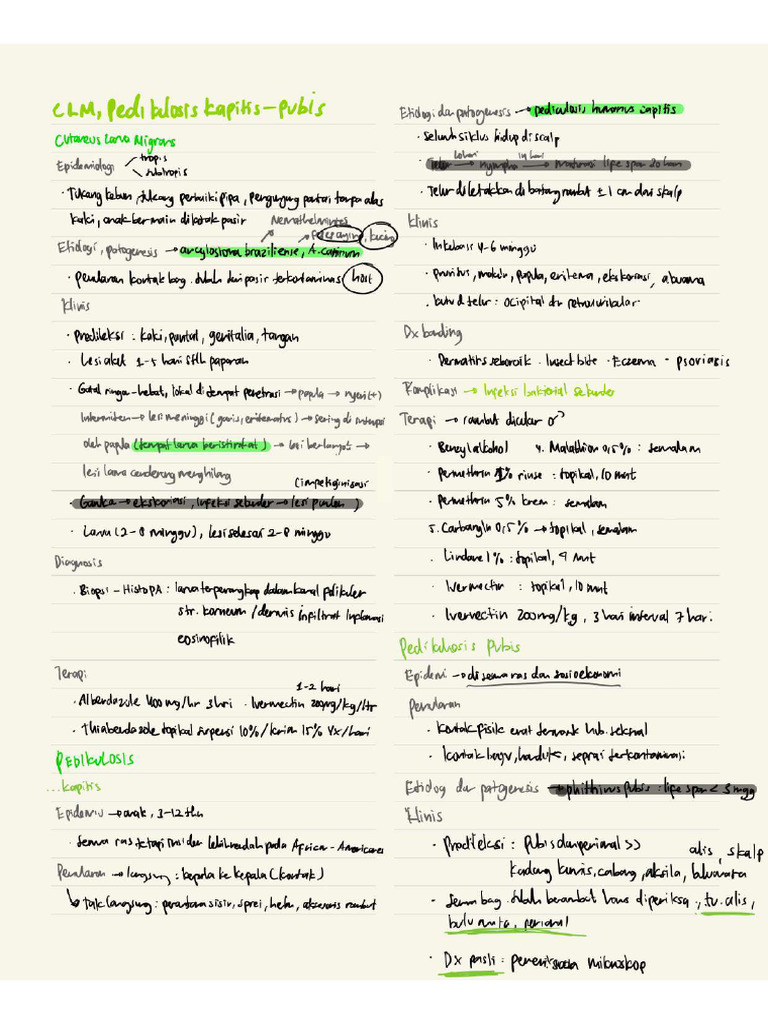 CLM, Pedikulosis Kapitis - Pubis
Cutaneus Larva Migrans
Epidemiologi tropis
subtropis
· Tukang kebun, tukang perbaiki pipa, pengunjung pantai tanpa alas
kaki, anak bermain di kotak pasir
Nemathelmintes
Etiologi, patogenesis → ancylostoma braziliense, A. caninum
anjing, kucing
· penularan kontak bag. tubuh dari pasir terkontaminas host
Klinis
· Predileksi : kaki, pantat, genitalia, tangan
· Lesi akut 1-5 hari stlh paparan
· Gatal ringan-hebat, lokal di tempat penetrasi → papula → nyeri (+)
Intermiten → lesi meninggi (garis, eritematus) → sering di
oleh papula (tempat larva beristirahat) → lesi berlanjut →
lesi lama cenderung menghilang
(impetiginisasi
· Garukan → ekskoriasi, infeksi sekunder → lesi )
· Larva (2-8 minggu), lesi selesai 2-8 minggu
Diagnosis
· Biopsi - HistoPA : larva terperangkap dalam kanal folikuler
str. korneum / dermis infiltrat inflamasi
eosinofilik
Terapi
1-2 hari
· Albendazole 400 mg/hr 3 hri · Ivermectin 200µg/kg/hr
· Thiabendazole topikal suspensi 10% / krim 15% 4x/hari
PEDIKULOSIS
... kapitis
Epidemio → anak, 3-12 thn
· Semua ras tetapi insiden lebih rendah pada African-Americans
Penularan → langsung : kepala ke kepala (kontak)
↳ tak langsung : perantara sisir, sprei, helm, aksesoris rambut
Etiologi dan patogenesis → pediculosis humanus capitis
· Seluruh siklus hidup di scalp
· Telur → nympha → life span 30 hari
· Telur diletakkan di batang rambut ± 1 cm dari scalp
Klinis
· Inkubasi 4-6 minggu
· pruritus, makula, papula, eritema, ekskoriasi,
· telur : ocipital dn retroaurikular
Dx banding
· Dermatitis seboroik · Insect bite · Eczema - psoriasis
Komplikasi → Infeksi bakterial sekunder
Terapi → rambut dicukur ♂
· Benzyl alkohol 4. Malathion 0,5% : semalam
· Permethrin 1% rinse : topikal, 10 mnt
· Permethrin 5% krem : semalam
5. Carbaryln 0,5% → topikal, semalam
· Lindane 1% : topikal, 4 mnt
· Ivermectin : topikal, 10 mnt
· Ivervectin 200mg/kg, 3 hari interval 7 hari.
Pedikulosis Pubis
Epidemi → di semua ras dan sosioekonomi
Penularan
· Kontak fisik erat termasuk hub. seksual
· Kontak baju, handuk, seprai terkontaminasi
Etiologi dan patogenesis → phithirus pubis : life span < 3 mgg
Klinis
· Predileksi : Pubis dan perianal >>
alis, skalp
kadang kumis, cabang, aksila, bulu mata
· Semua bag. tubuh berambut harus diperiksa ., tu. alis,
bulu mata, perianal
· Dx pasti : mikroskop